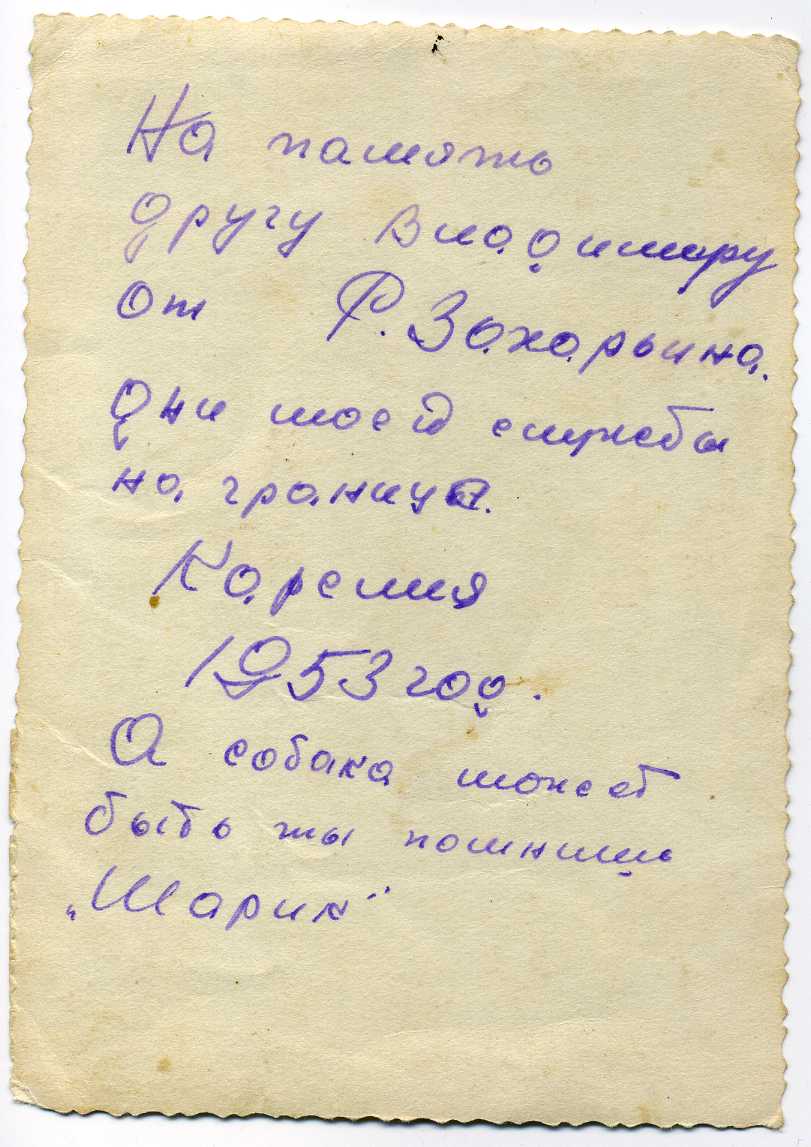 На память
другу Владимиру
от Р. Захарьина.
Дни моей службы
на границе.
Карелия
1953 год.
А собака может
быть ты помнишь
„Шарик“